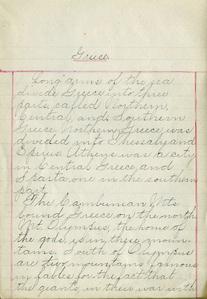 Greece.
Long arms of the sea
divide Greece into three
parts, called Northern,
Central, and Southern
Greece. Northern Greece was
divided into Thessaly and
Epirus. Athens was a city
in Central Greece, and
Sparta one in the southern
part.
The Cambunian Mts
bound Greece on the north
Mt. Olympus, the home of
the gods, is in these moun-
tains. South of Olympus
are two mountains famous
in fables for the fact that
the giants, in their war with